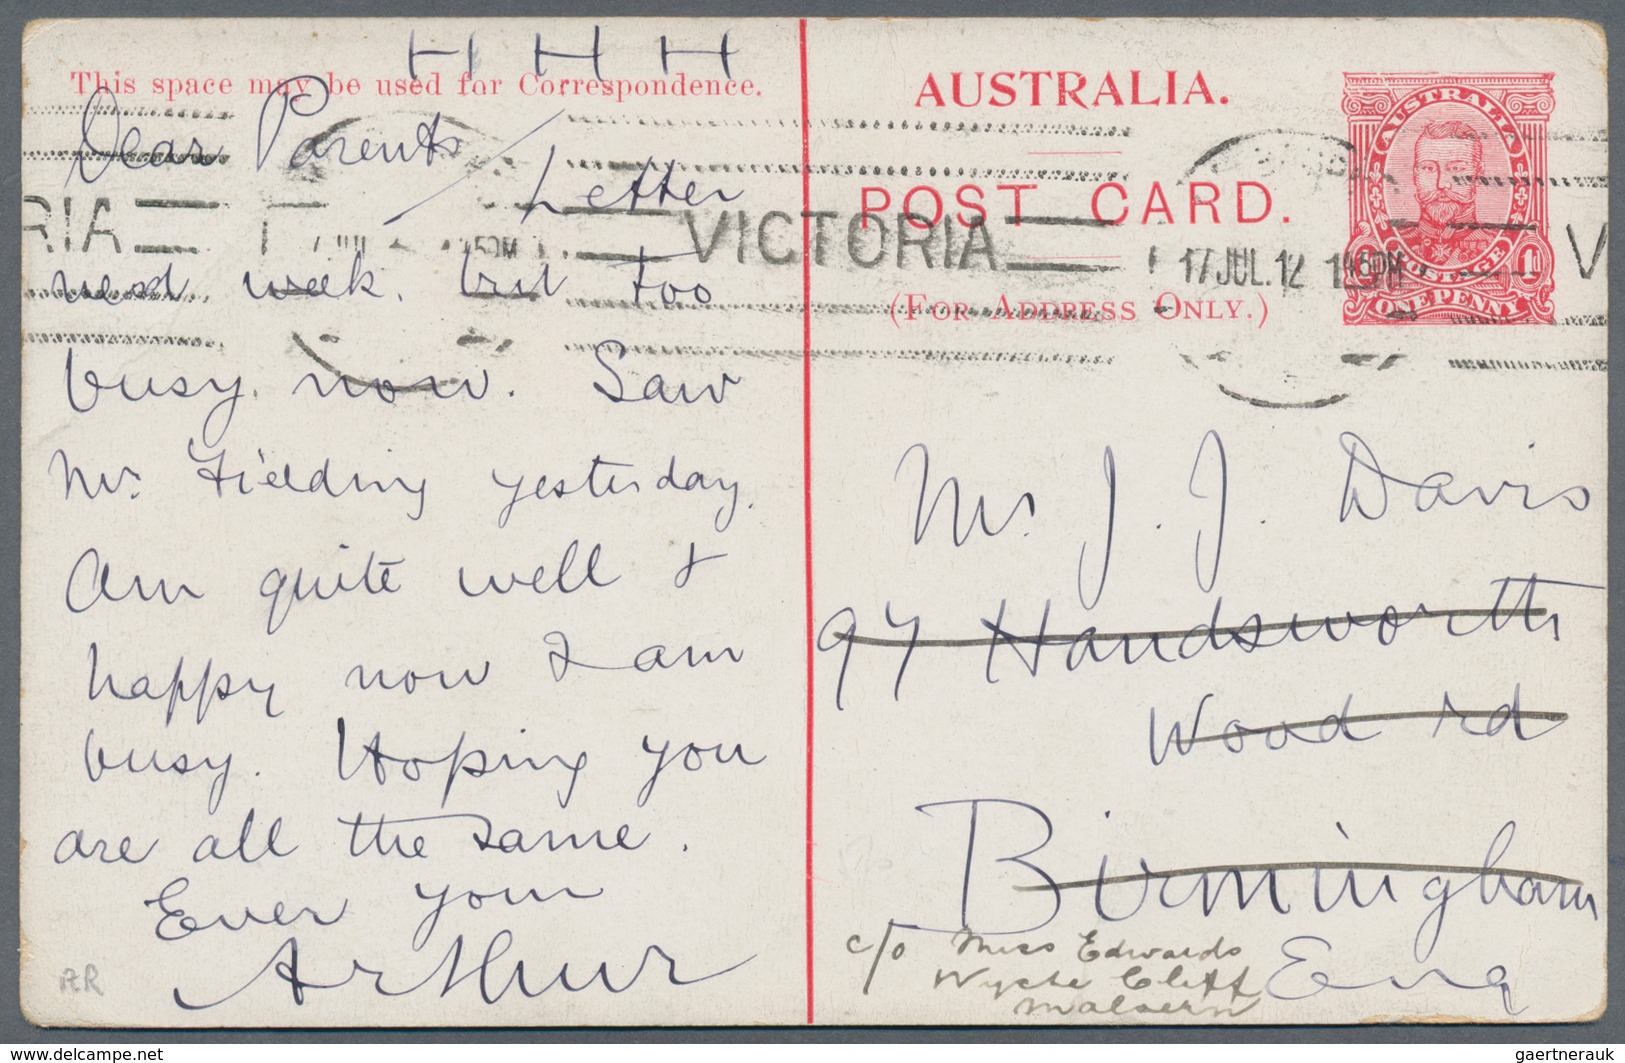 H H H
This space may be used for Correspondence.
Dear Parents
/ Letter
next week. but too
busy. now. Saw
Mr. Fielding yesterday.
Am quite well &
happy now I am
busy. Hoping you
are all the same.
Ever your
Arthur
AR
RIA
VICTORIA
V
17 JUL. 12 1 45PM
AUSTRALIA.
POST CARD.
(FOR ADDRESS ONLY.)
AUSTRALIA
POSTAGE
1D
ONE PENNY
Mr J. J. Davis
97 Handsworth
Wood rd
Birmingham
Eng
c/o Miss Edwards
Wyche Cliff
Malvern
gaertnerauk
www.delcampe.net